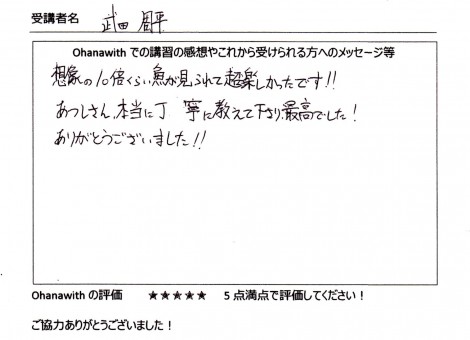 受講者名 武田 周平
Ohanawith での講習の感想やこれから受けられる方へのメッセージ等
想像の10倍くらい魚が見られて超楽しかったです!!
あつしさん、本当に丁寧に教えて下さり最高でした!
ありがとうございました!!
Ohanawith の評価 ★★★★★ 5点満点で評価してください！
ご協力ありがとうございました！